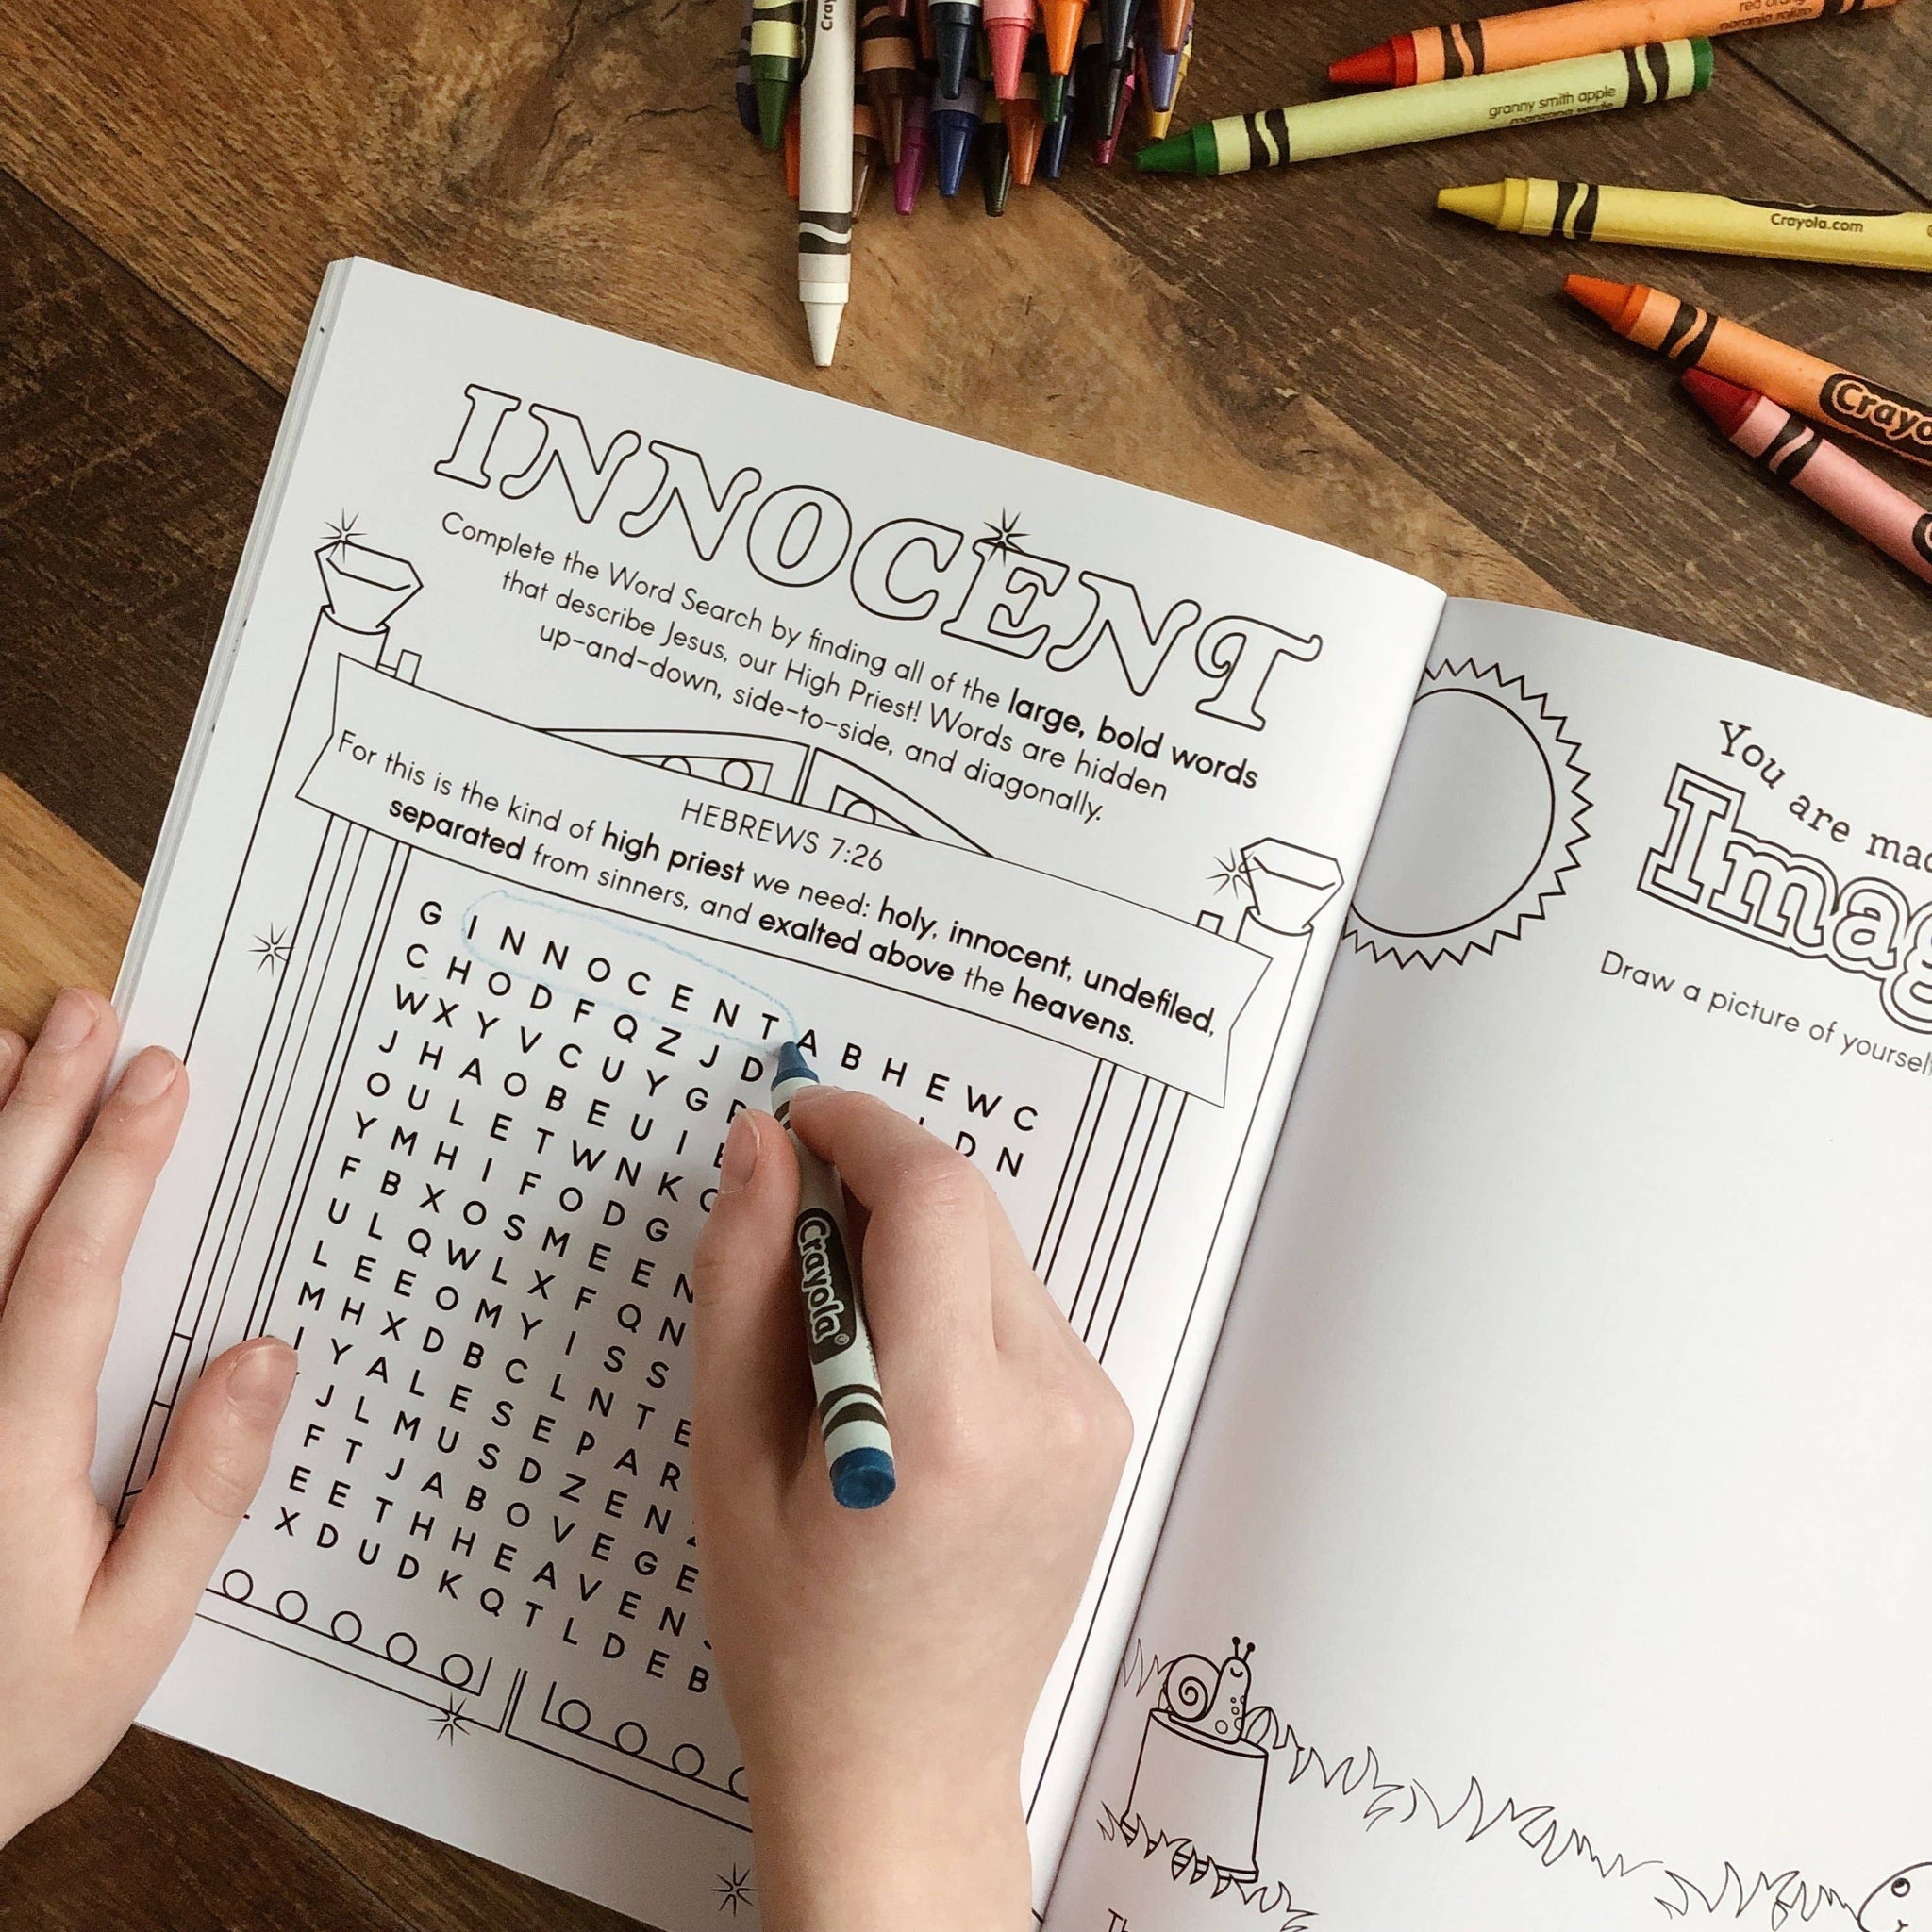 red orange
naranja rojizo
granny smith apple
manzana verde
Crayola.com
Cray
Crayo
INNOCENT
Complete the Word Search by finding all of the large, bold words
that describe Jesus, our High Priest! Words are hidden
up-and-down, side-to-side, and diagonally.
HEBREWS 7:26
For this is the kind of high priest we need: holy, innocent, undefiled,
separated from sinners, and exalted above the heavens.
G I N N O C E N T A B H E W C
C H O D F Q Z J D D N
W X Y V C U Y G
J H A O B E U I
O U L E T W N K
Y M H I F O D G
F B X O S M E E N
U L Q W L X F Q N
L E E O M Y I S S
M H X D B C L N T E
I Y A L E S E P A R
J L M U S D Z E N
F T J A B O V E G E
E E T H H E A V E N
X D U D K Q T L D E B
Crayola®
You are mad
Imag
Draw a picture of yoursel
Th